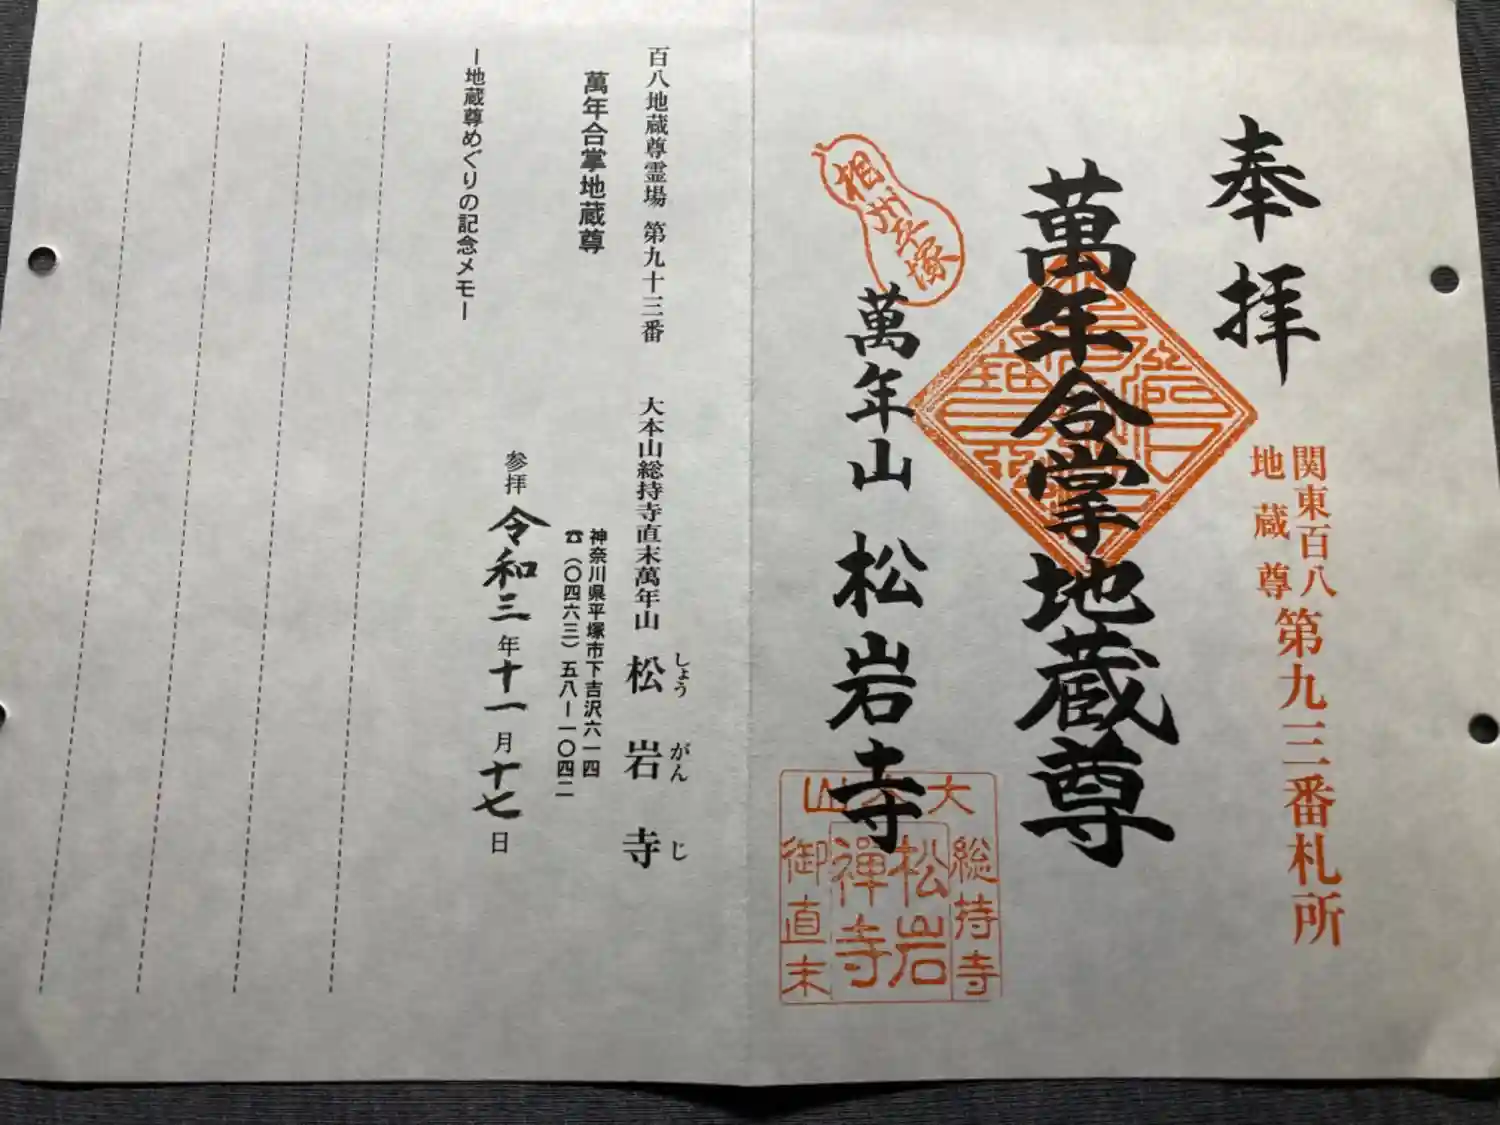 奉拝
関東百八
地蔵尊
第九三番札所
萬年合掌地蔵尊
相州平塚
萬年山 松岩寺
大本山
総持寺
御直末
松岩
禅寺
百八地蔵尊霊場 第九十三番 大本山総持寺直末萬年山 松岩寺
しょう がん じ
萬年合掌地蔵尊
神奈川県平塚市下吉沢六一四
☎(〇四六三)五八ー一〇四二
参拝 令和三年十一月十七日
ー地蔵尊めぐりの記念メモー